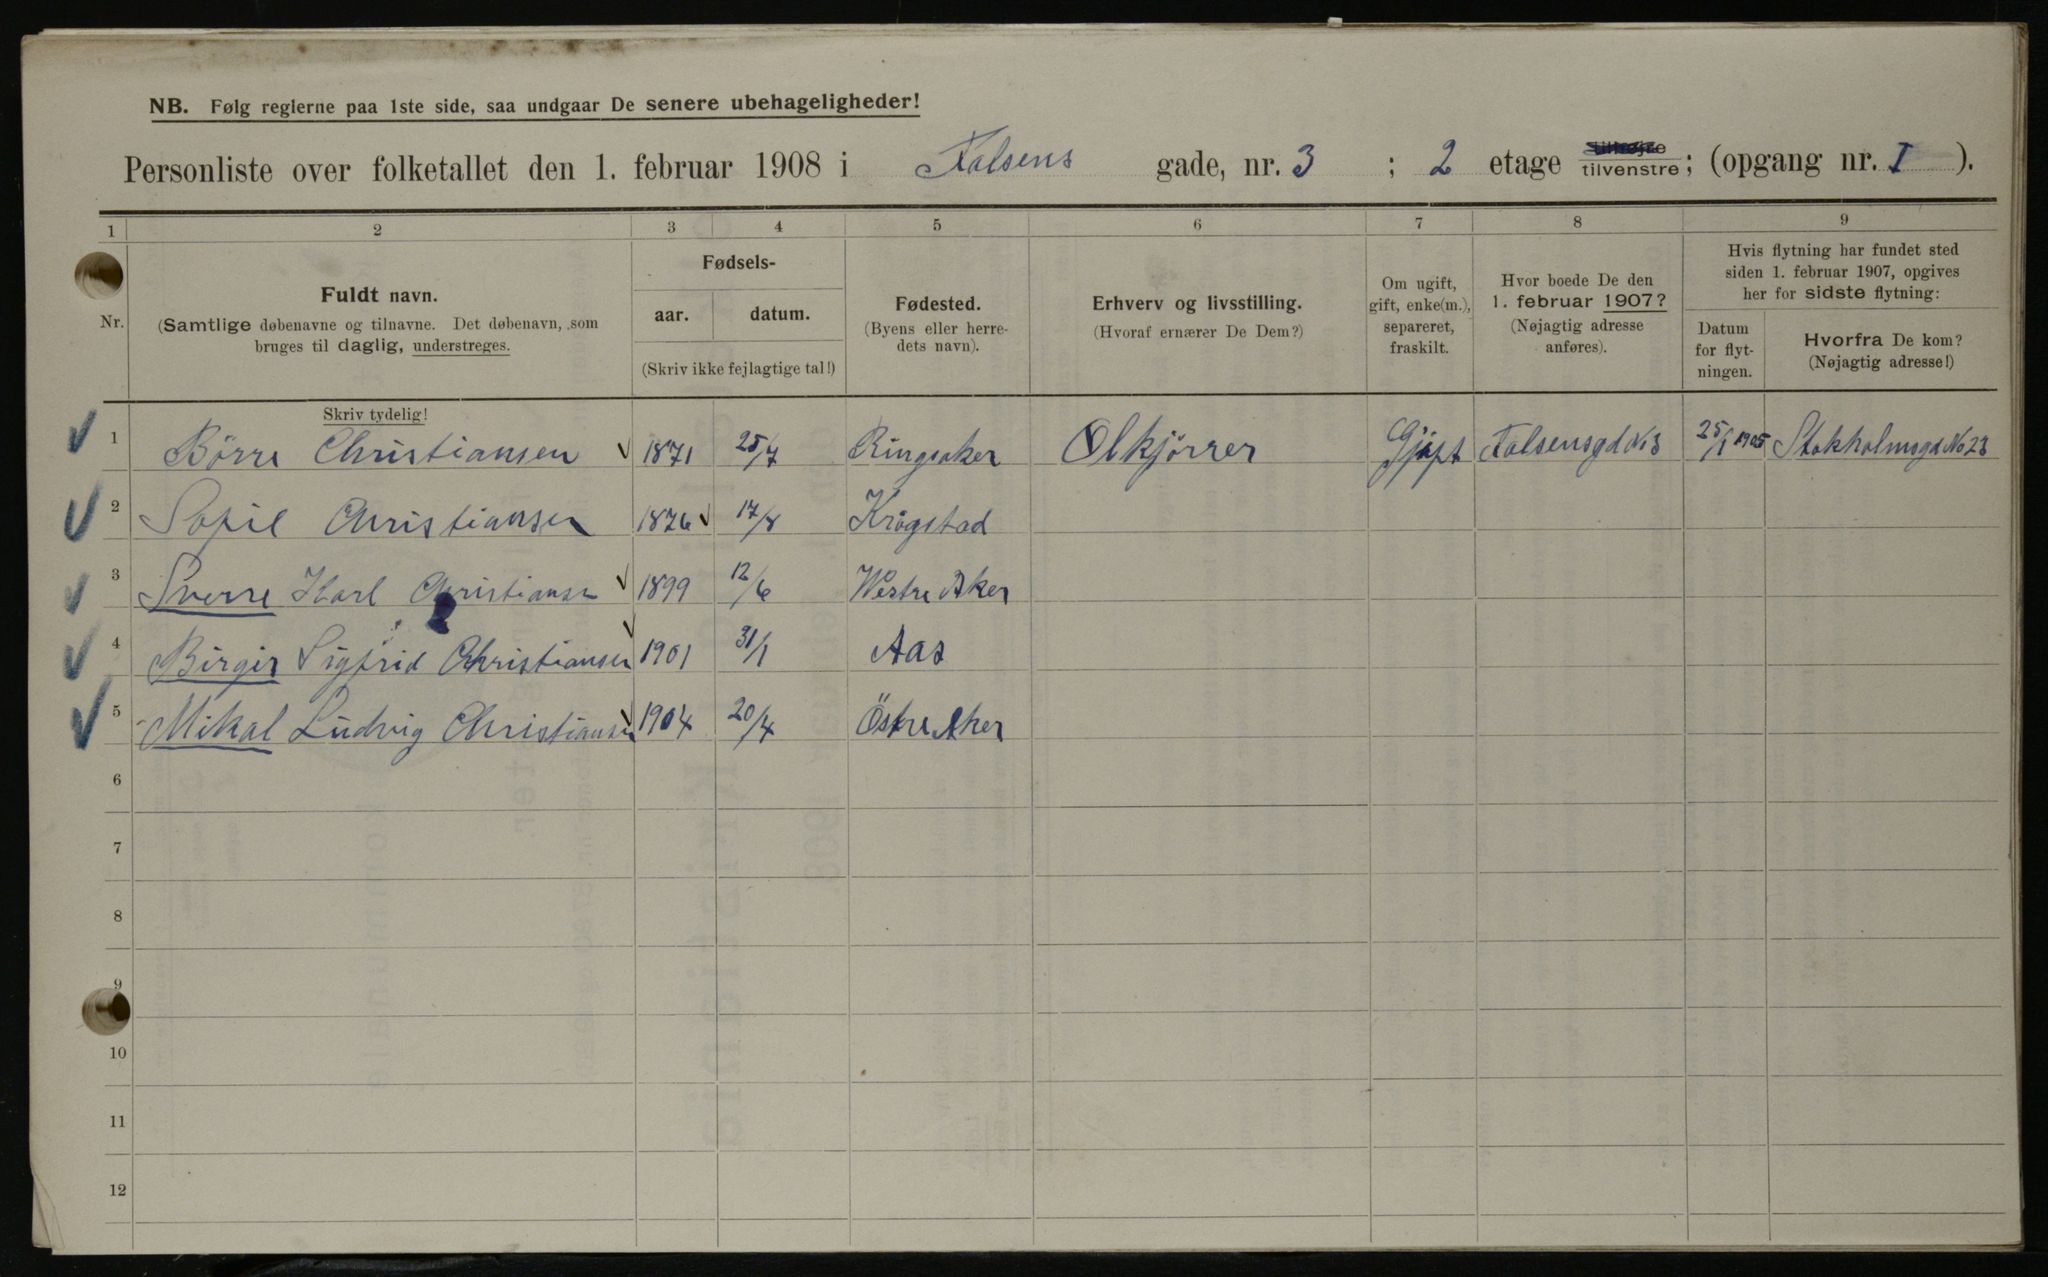 NB. Følg reglerne paa 1ste side, saa undgaar De senere ubehageligheder!
Personliste over folketallet den 1. februar 1908 i Falsens gade, nr. 3 ; 2 etage tilhøjre tilvenstre; (opgang nr. I ).
1 2 3 4 5 6 7 8 9
Nr.
Fuldt navn.
(Samtlige døbenavne og tilnavne. Det døbenavn, som
bruges til daglig, understreges.
Skriv tydelig!
Fødsels-
aar. datum.
(Skriv ikke fejlagtige tal!)
Fødested.
(Byens eller herre-
dets navn).
Erhverv og livsstilling.
(Hvoraf ernærer De Dem?)
Om ugift,
gift, enke(m.),
separeret,
fraskilt.
Hvor boede De den
1. februar 1907?
(Nøjagtig adresse
anføres).
Hvis flytning har fundet sted
siden 1. februar 1907, opgives
her for sidste flytning:
Datum
for flyt-
ningen.
Hvorfra De kom?
(Nøjagtig adresse!)
1 Börre Christiansen 1871 25/7 Ringsaker Olkjörrer Gjift Falsensgd No 3 25/1 1905 Stokholmsgd No 23
2 Sofie Christiansen 1876 17/8 Krogstad
3 Sverre Karl Christiansen 1899 12/6 Westre Aker
4 Birgir Sigfrid Christiansen 1901 31/1 Aas
5 Mikal Ludvig Christiansen 1904 20/4 Östre Aker
6
7
8
9
10
11
12